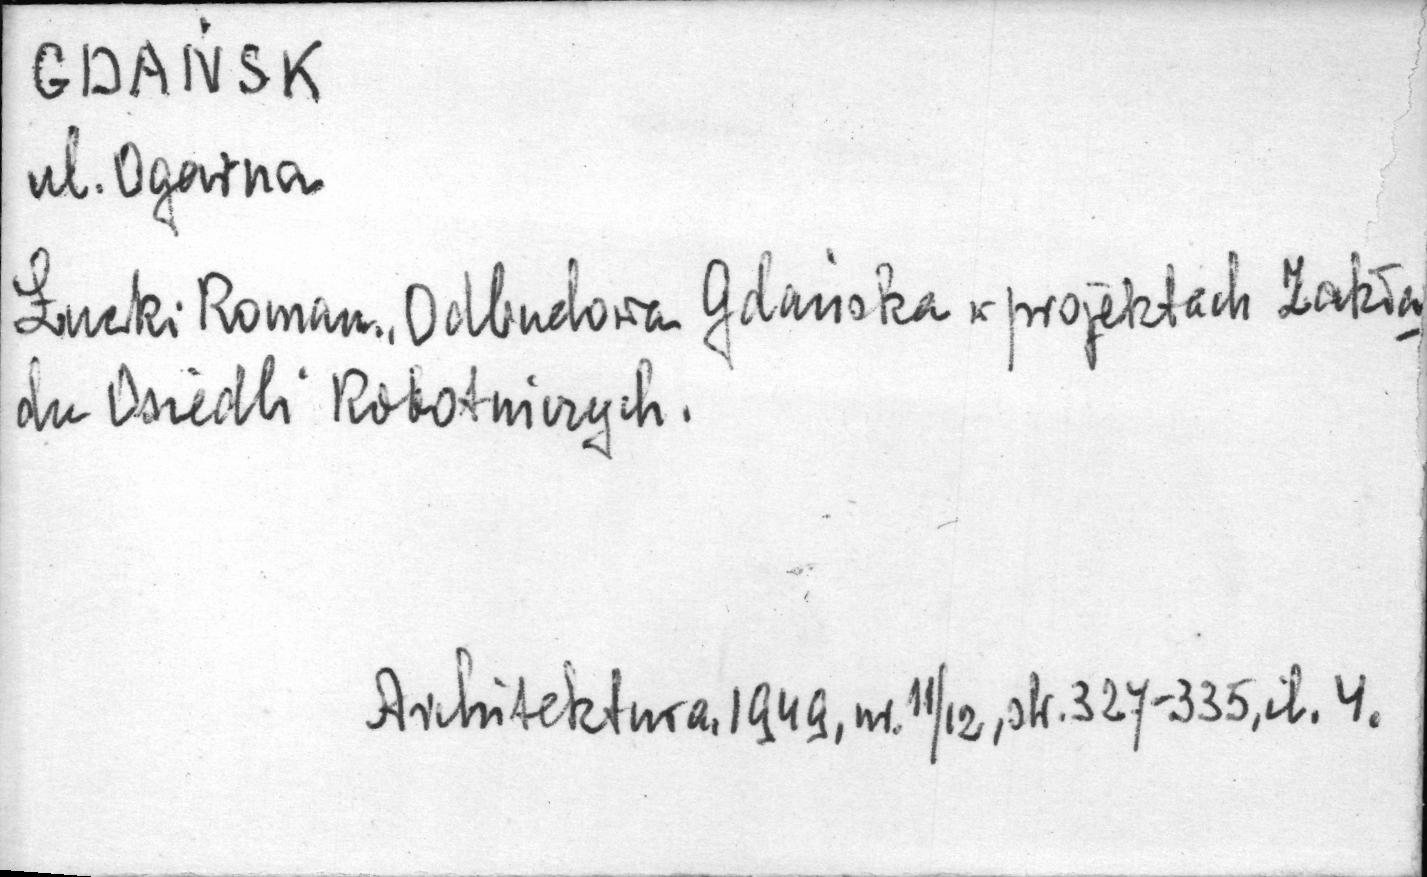 GDAŃSK
ul. Ogarna
Roman., Odbudowa Gdańska w projektach Zakła
du Osiedli Robotniczych.
Architektura. 1949, nr. 11/12, str. 327-335, il. 4.